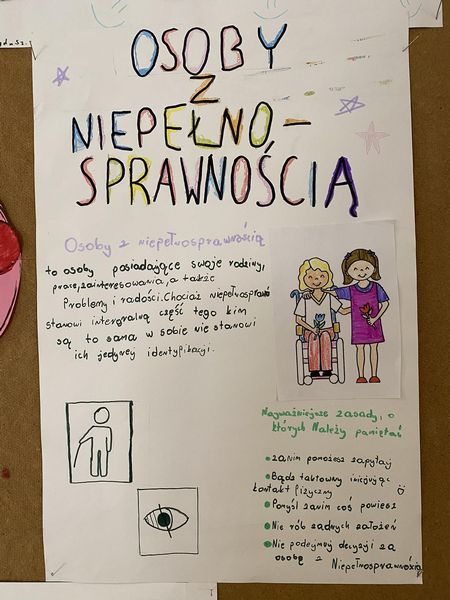 OSOBY
Z
NIEPEŁNO-
SPRAWNOŚCIĄ
Osoby z niepełnosprawnością
to osoby posiadające swoje rodziny,
prace, zainteresowania, a także
Problemy i radości. Chociaż niepełnosprawność
stanowi intergralną część tego kim
są to sama w sobie nie stanowi
ich jedynej identyfikacji.
Najważniejsze zasady, o
których Należy pamiętać
• zanim pomożesz zapytaj
• Bądź taktowny inicjując
kontakt fizyczny
• Pomyśl zanim coś powiesz
• Nie rób żadnych założeń
• Nie podejmuj decyzji za
osobę z Niepełnosprawnością